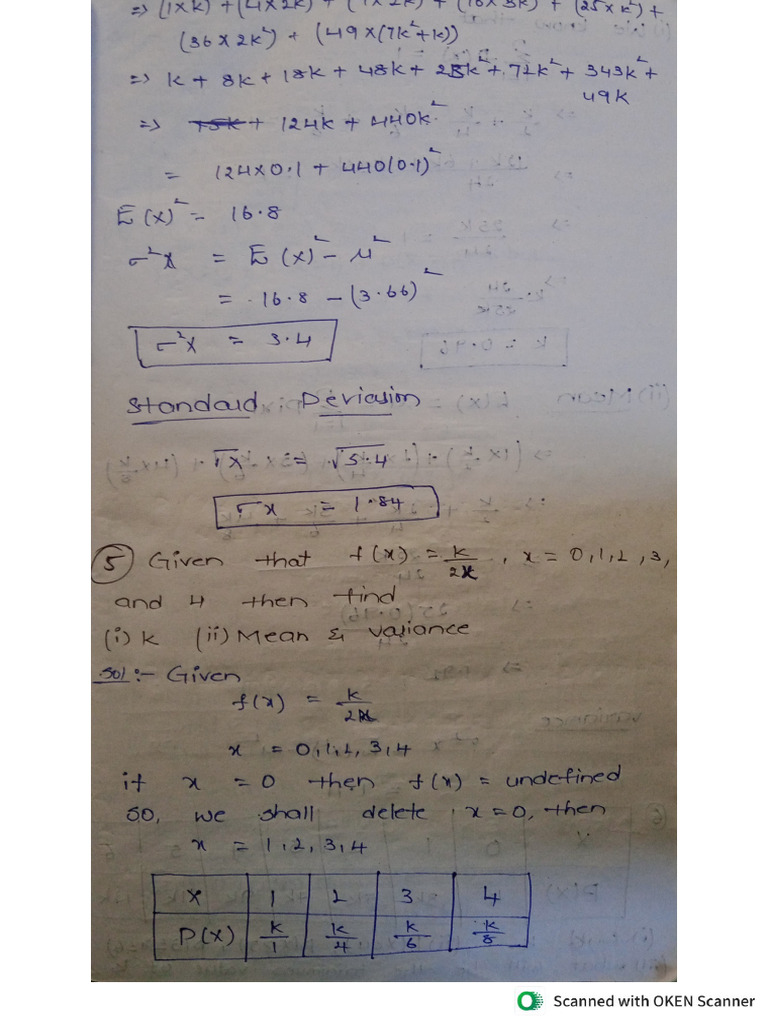 ⇒ (1×k) + (4×2k) + (9×2k) + (16×3k) + (25×k²) +
(36×2k²) + (49×(7k²+k))
⇒ k + 8k + 18k + 48k + 25k² + 72k² + 343k² +
49k
⇒ 124k + 440k²
= 124×0.1 + 440(0.1)²
E(x)² = 16.8
σ²x = E(x)² - μ²
= 16.8 - (3.66)²
σ²x = 3.4
Standard Deviation
√x = √3.4
σx = 1.84
5 Given that f(x) = k/2x, x = 0,1,2,3,
and 4 then find
(i) k (ii) Mean & variance
Sol:- Given
f(x) = k/2x
x = 0,1,2,3,4
if x = 0 then f(x) = undefined
so, we shall delete x=0, then
x = 1,2,3,4
X 1 2 3 4
P(X) k/1 k/4 k/6 k/8
Scanned with OKEN Scanner